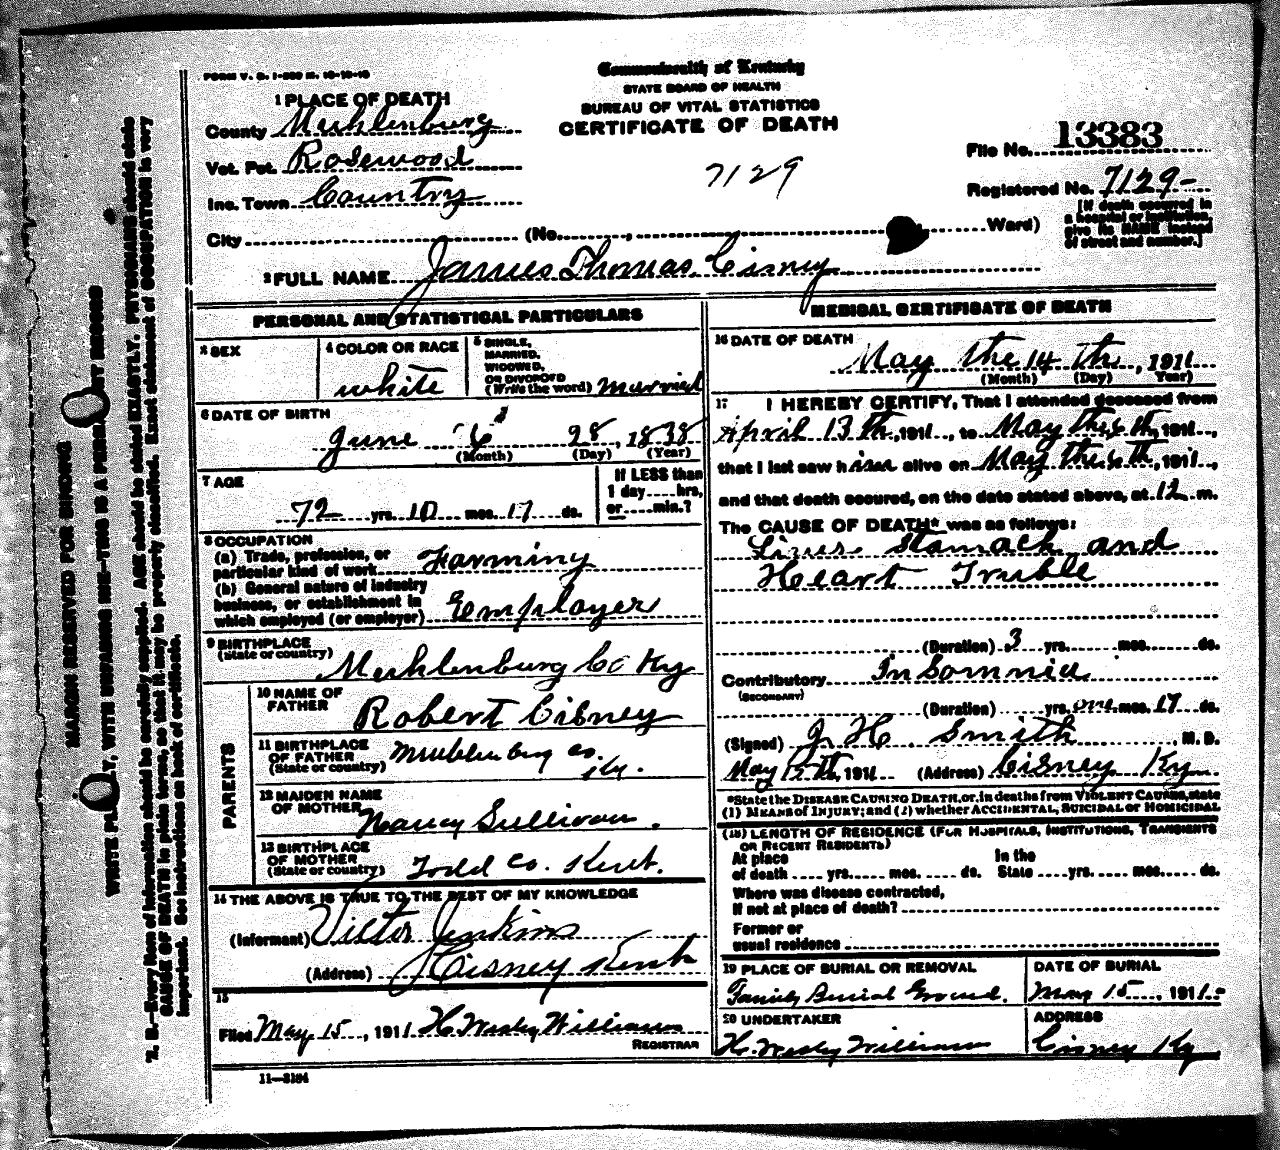 FORM V. S. 1-
Commonwealth of Kentucky
STATE BOARD OF HEALTH
BUREAU OF VITAL STATISTICS
CERTIFICATE OF DEATH
1 PLACE OF DEATH
County Muhlenburg
Vot. Pct. Rosewood
Inc. Town Country
City (No. , Ward)
7129
File No. 13383
Registered No. 7129-
[If death occurred in
a hospital or institution,
give its NAME instead
of street and number.]
2 FULL NAME James Thomas Cisney
PERSONAL AND STATISTICAL PARTICULARS
3 SEX
4 COLOR OR RACE
white
5 SINGLE,
MARRIED,
WIDOWED,
OR DIVORCED
(Write the word) married
6 DATE OF BIRTH
June 6 28, 1838
(Month) (Day) (Year)
7 AGE
72 yrs. 10 mos. 17 ds.
If LESS than
1 day hrs,
or min.?
8 OCCUPATION
(a) Trade, profession, or
particular kind of work Farming
(b) General nature of industry
business, or establishment in
which employed (or employer) Employer
9 BIRTHPLACE
(State or country)
Muhlenburg Co Ky
PARENTS
10 NAME OF
FATHER
Robert Cisney
11 BIRTHPLACE
OF FATHER
(State or country)
Muhlenburg Co.
Ky.
12 MAIDEN NAME
OF MOTHER
Nancy Sullivan.
13 BIRTHPLACE
OF MOTHER
(State or country)
Todd Co. Kent.
14 THE ABOVE IS TRUE TO THE BEST OF MY KNOWLEDGE
(Informant) Victor Jenkins
(Address) Cisney Kent
15
Filed May 15, 1911 H. Wesley Williams
REGISTRAR
11-3184
MEDICAL CERTIFICATE OF DEATH
16 DATE OF DEATH
May the 14 th, 1911
(Month) (Day) Year)
17 I HEREBY CERTIFY, That I attended deceased from
April 13th, 1911, to May the 6th, 1911,
that I last saw him alive on May the 6th, 1911,
and that death occured, on the date stated above, at 12 m.
The CAUSE OF DEATH* was as follows:
Liver Stomach and
Heart Truble
(Duration) 3 yrs. mos. ds.
Contributory In Somnia
(SECONDARY)
(Duration) yrs. one mos. 17 ds.
(Signed) J. H. Smith M. D.
May 15th, 1911 (Address) Cisney Ky
*State the DISEASE CAUSING DEATH, or, in deaths from VIOLENT CAUSES, state
(1) MEANS of INJURY; and (2) whether ACCIDENTAL, SUICIDAL or HOMICIDAL
(18) LENGTH OF RESIDENCE (FOR HOSPITALS, INSTITUTIONS, TRANSIENTS
OR RECENT RESIDENTS)
At place In the
of death yrs. mos. ds. State yrs. mos. ds.
Where was disease contracted,
If not at place of death?
Former or
usual residence
19 PLACE OF BURIAL OR REMOVAL
Family Burial Ground.
DATE OF BURIAL
May 15, 1911-
20 UNDERTAKER
H. Wesley Williams
ADDRESS
Cisney Ky
MARGIN RESERVED FOR BINDING
WRITE PLAINLY, WITH UNFADING INK—THIS IS A PERMANENT RECORD
N. B.—Every item of information should be carefully supplied. AGE should be stated EXACTLY. PHYSICIANS should state
CAUSE OF DEATH in plain terms, so that it may be properly classified. Exact statement of OCCUPATION is very
important. See instructions on back of certificate.